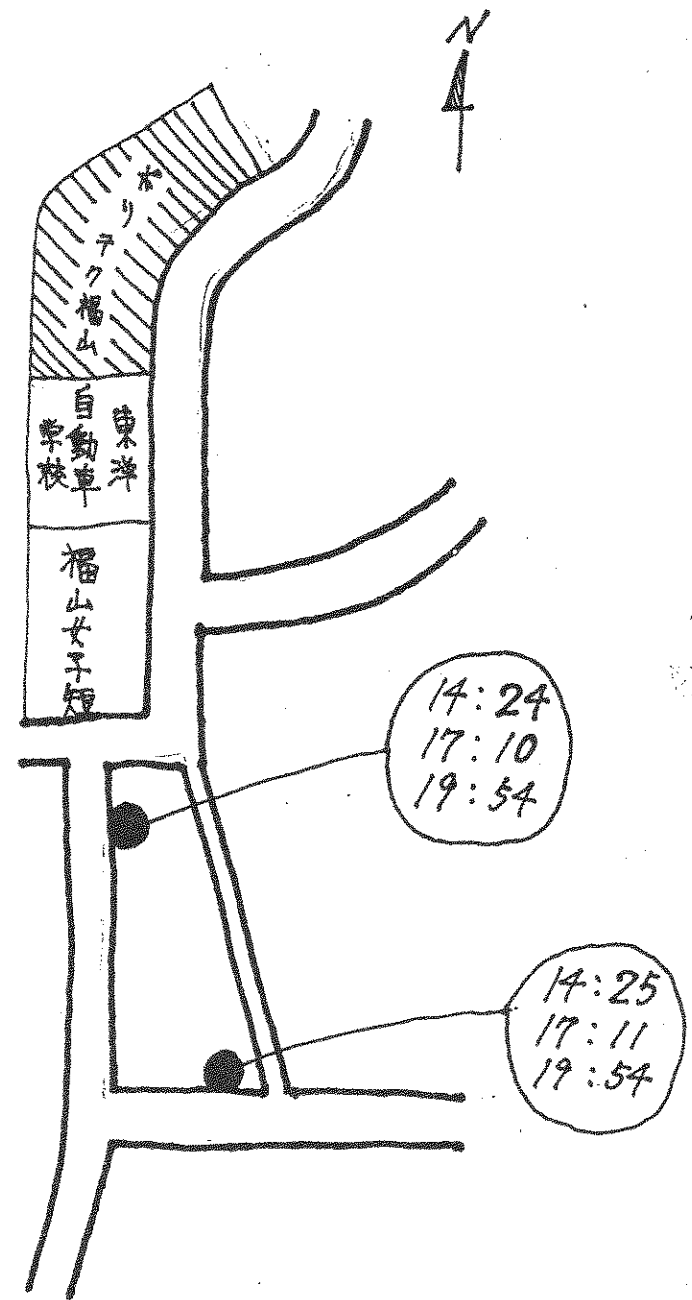 N
ポリテク福山
東洋
自動車
学校
福山女子短
14:24
17:10
19:54
14:25
17:11
19:54